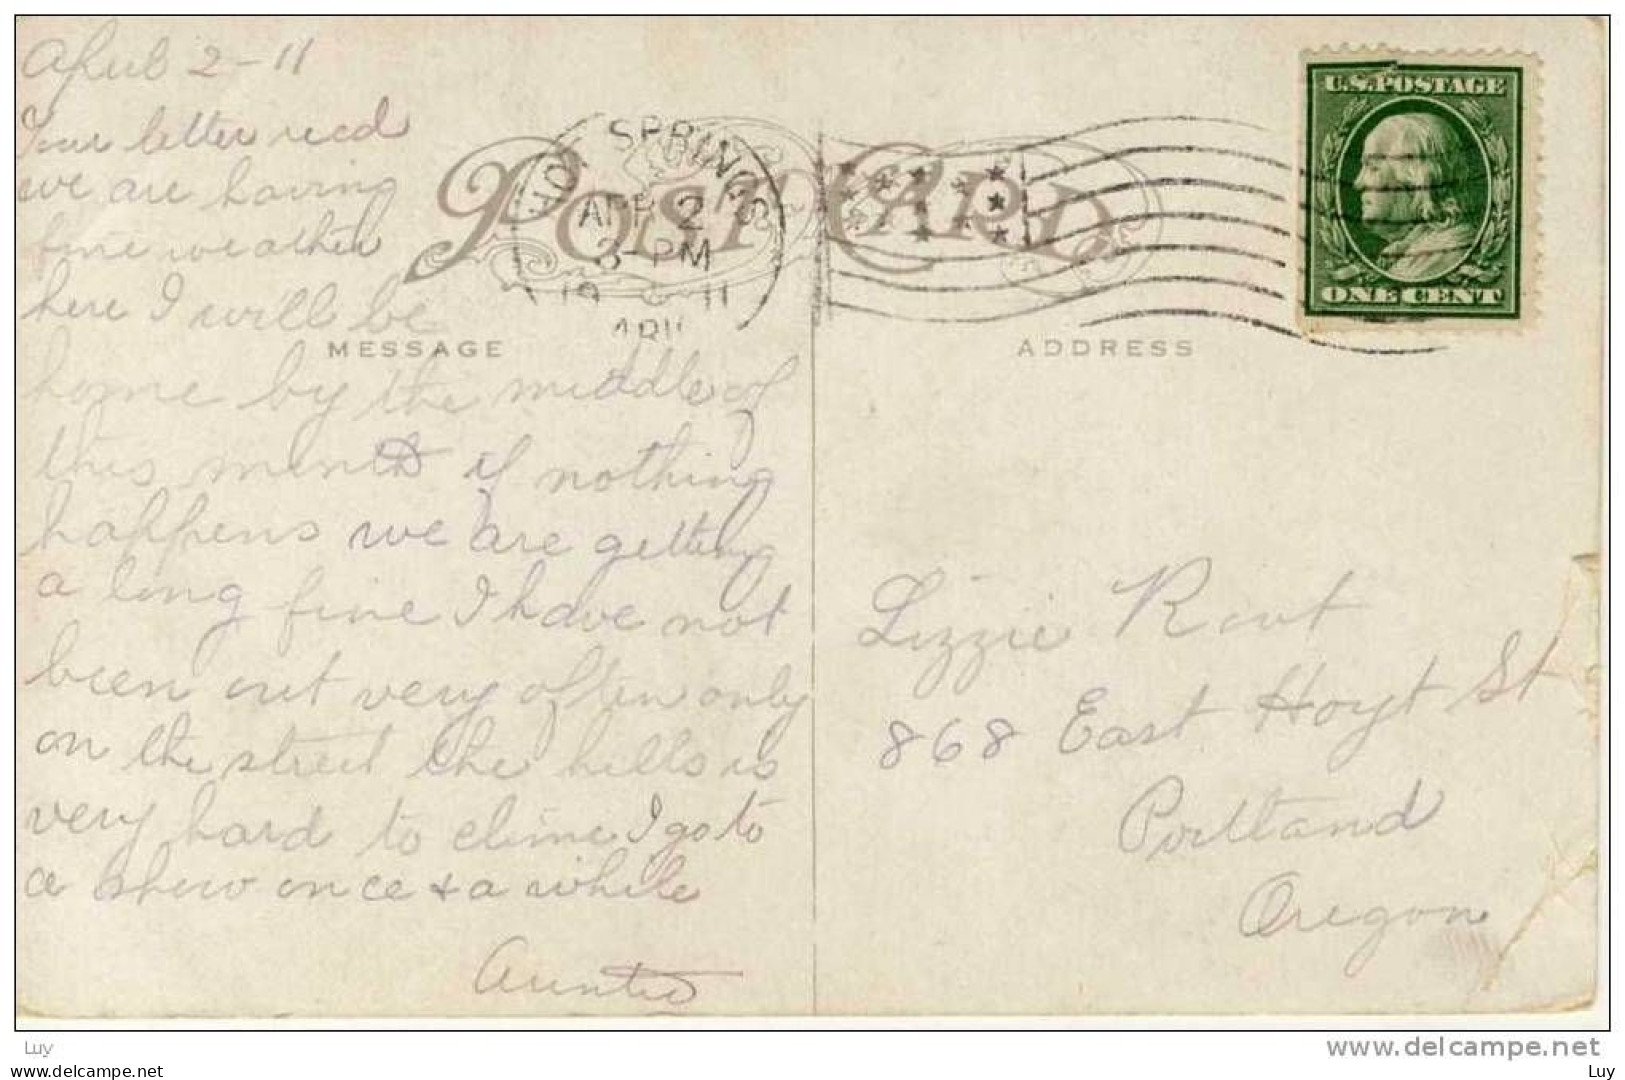 April 2-11
Your letter recd
we are having
fine weather
here I will be
home by the middle of
this month if nothing
happens we are getting
a long fine I have not
been out very often only
on the street the hills is
very hard to clime I go to
a show once + a while
Auntie
POST CARD
HOT SPRINGS
APR 2
3-PM
19 11
ARK
MESSAGE
ADDRESS
U.S. POSTAGE
ONE CENT
Lizzie
868 East Hoyt St
Portland
Oregon
Luy
www.delcampe.net
Luy
Luy